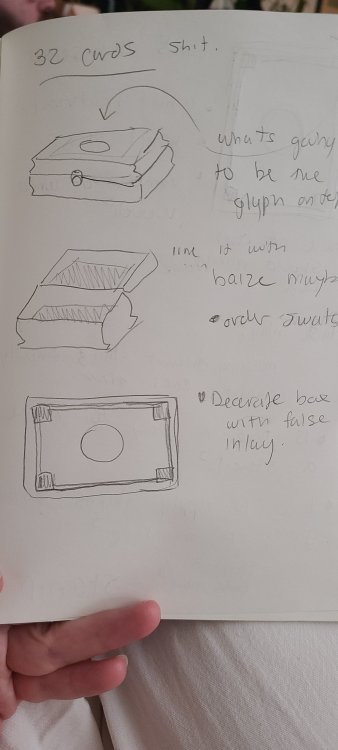 32 cards shit.
whats going
to be the
glyph on
line it with
baize
order
Decorate box
with false
inlay.